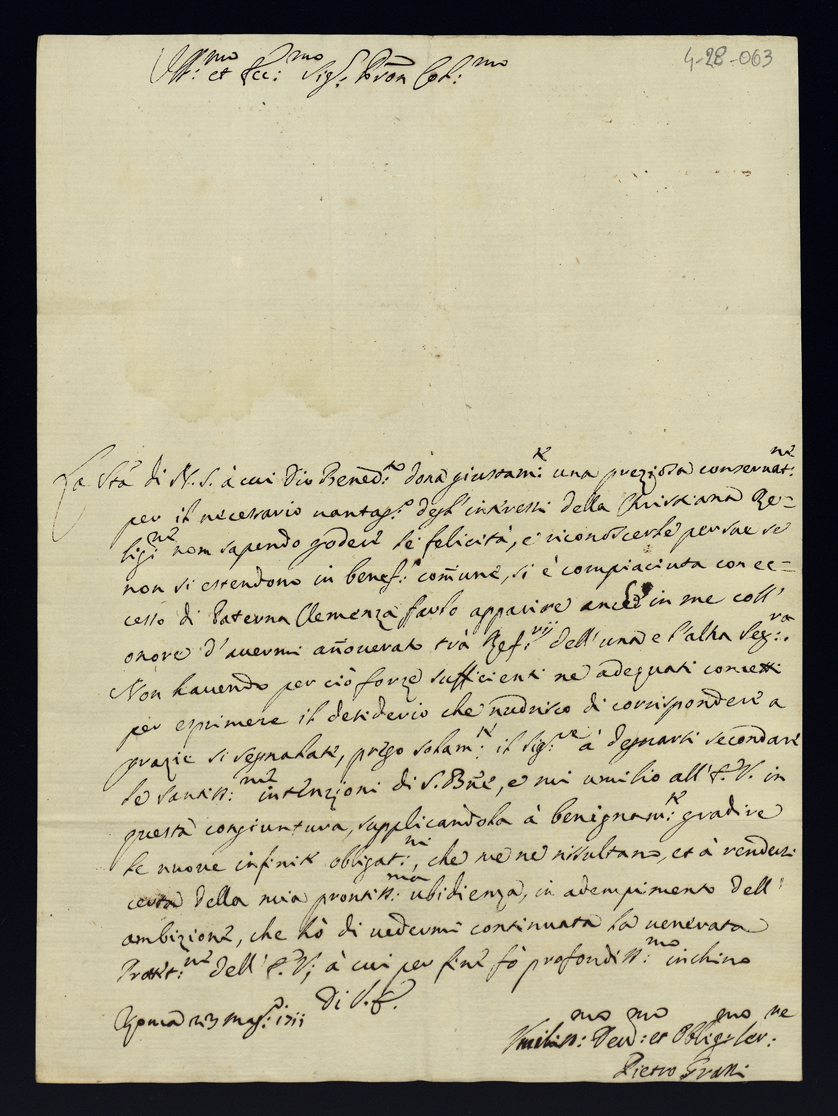 4-28-063
Ill:mo et Ecc:mo Sig.r Pron Col:mo
La Stà di N. S. à cui Dio Bened:to dona giustam:te una preziosa conservat:ne
per il necessario vantag:o degl'interessi della Christiana Re=
lig:ne non sapendo godere le felicità, e riconoscerle per sue se
non si estendono in benef:o comune, si è compiaciuta con ec=
cesso di Paterna Clemenza farlo apparire anche in me coll'
onore d'avermi añoverato trà Ref:rij dell'una e l'altra Seg:ra.
Non havendo per ciò forze sufficienti ne adequati concetti
per esprimere il desiderio che nudrisco di corrispondere a
grazie si segnalate, prego solam:te il Sig:re à degnarsi secondare
le santiss:me intenzioni di S. Bñe, e mi umilio all'E. V. in
questa congiuntura, supplicandola à benignam:te gradire
le nuove infinite obligat:ni, che me ne risultano, et à rendersi
certa della mia prontiss:ma ubidienza, in adempimento dell'
ambizione, che hò di vedermi continuata la venerata
Protet:ne dell'E. V; à cui per fine fò profondiss:mo inchino
Di V. E.
Roma 23 Mag:o 1711
Umiliss:mo Dev:mo et Oblig:mo Ser:ne
Pietro Grassi